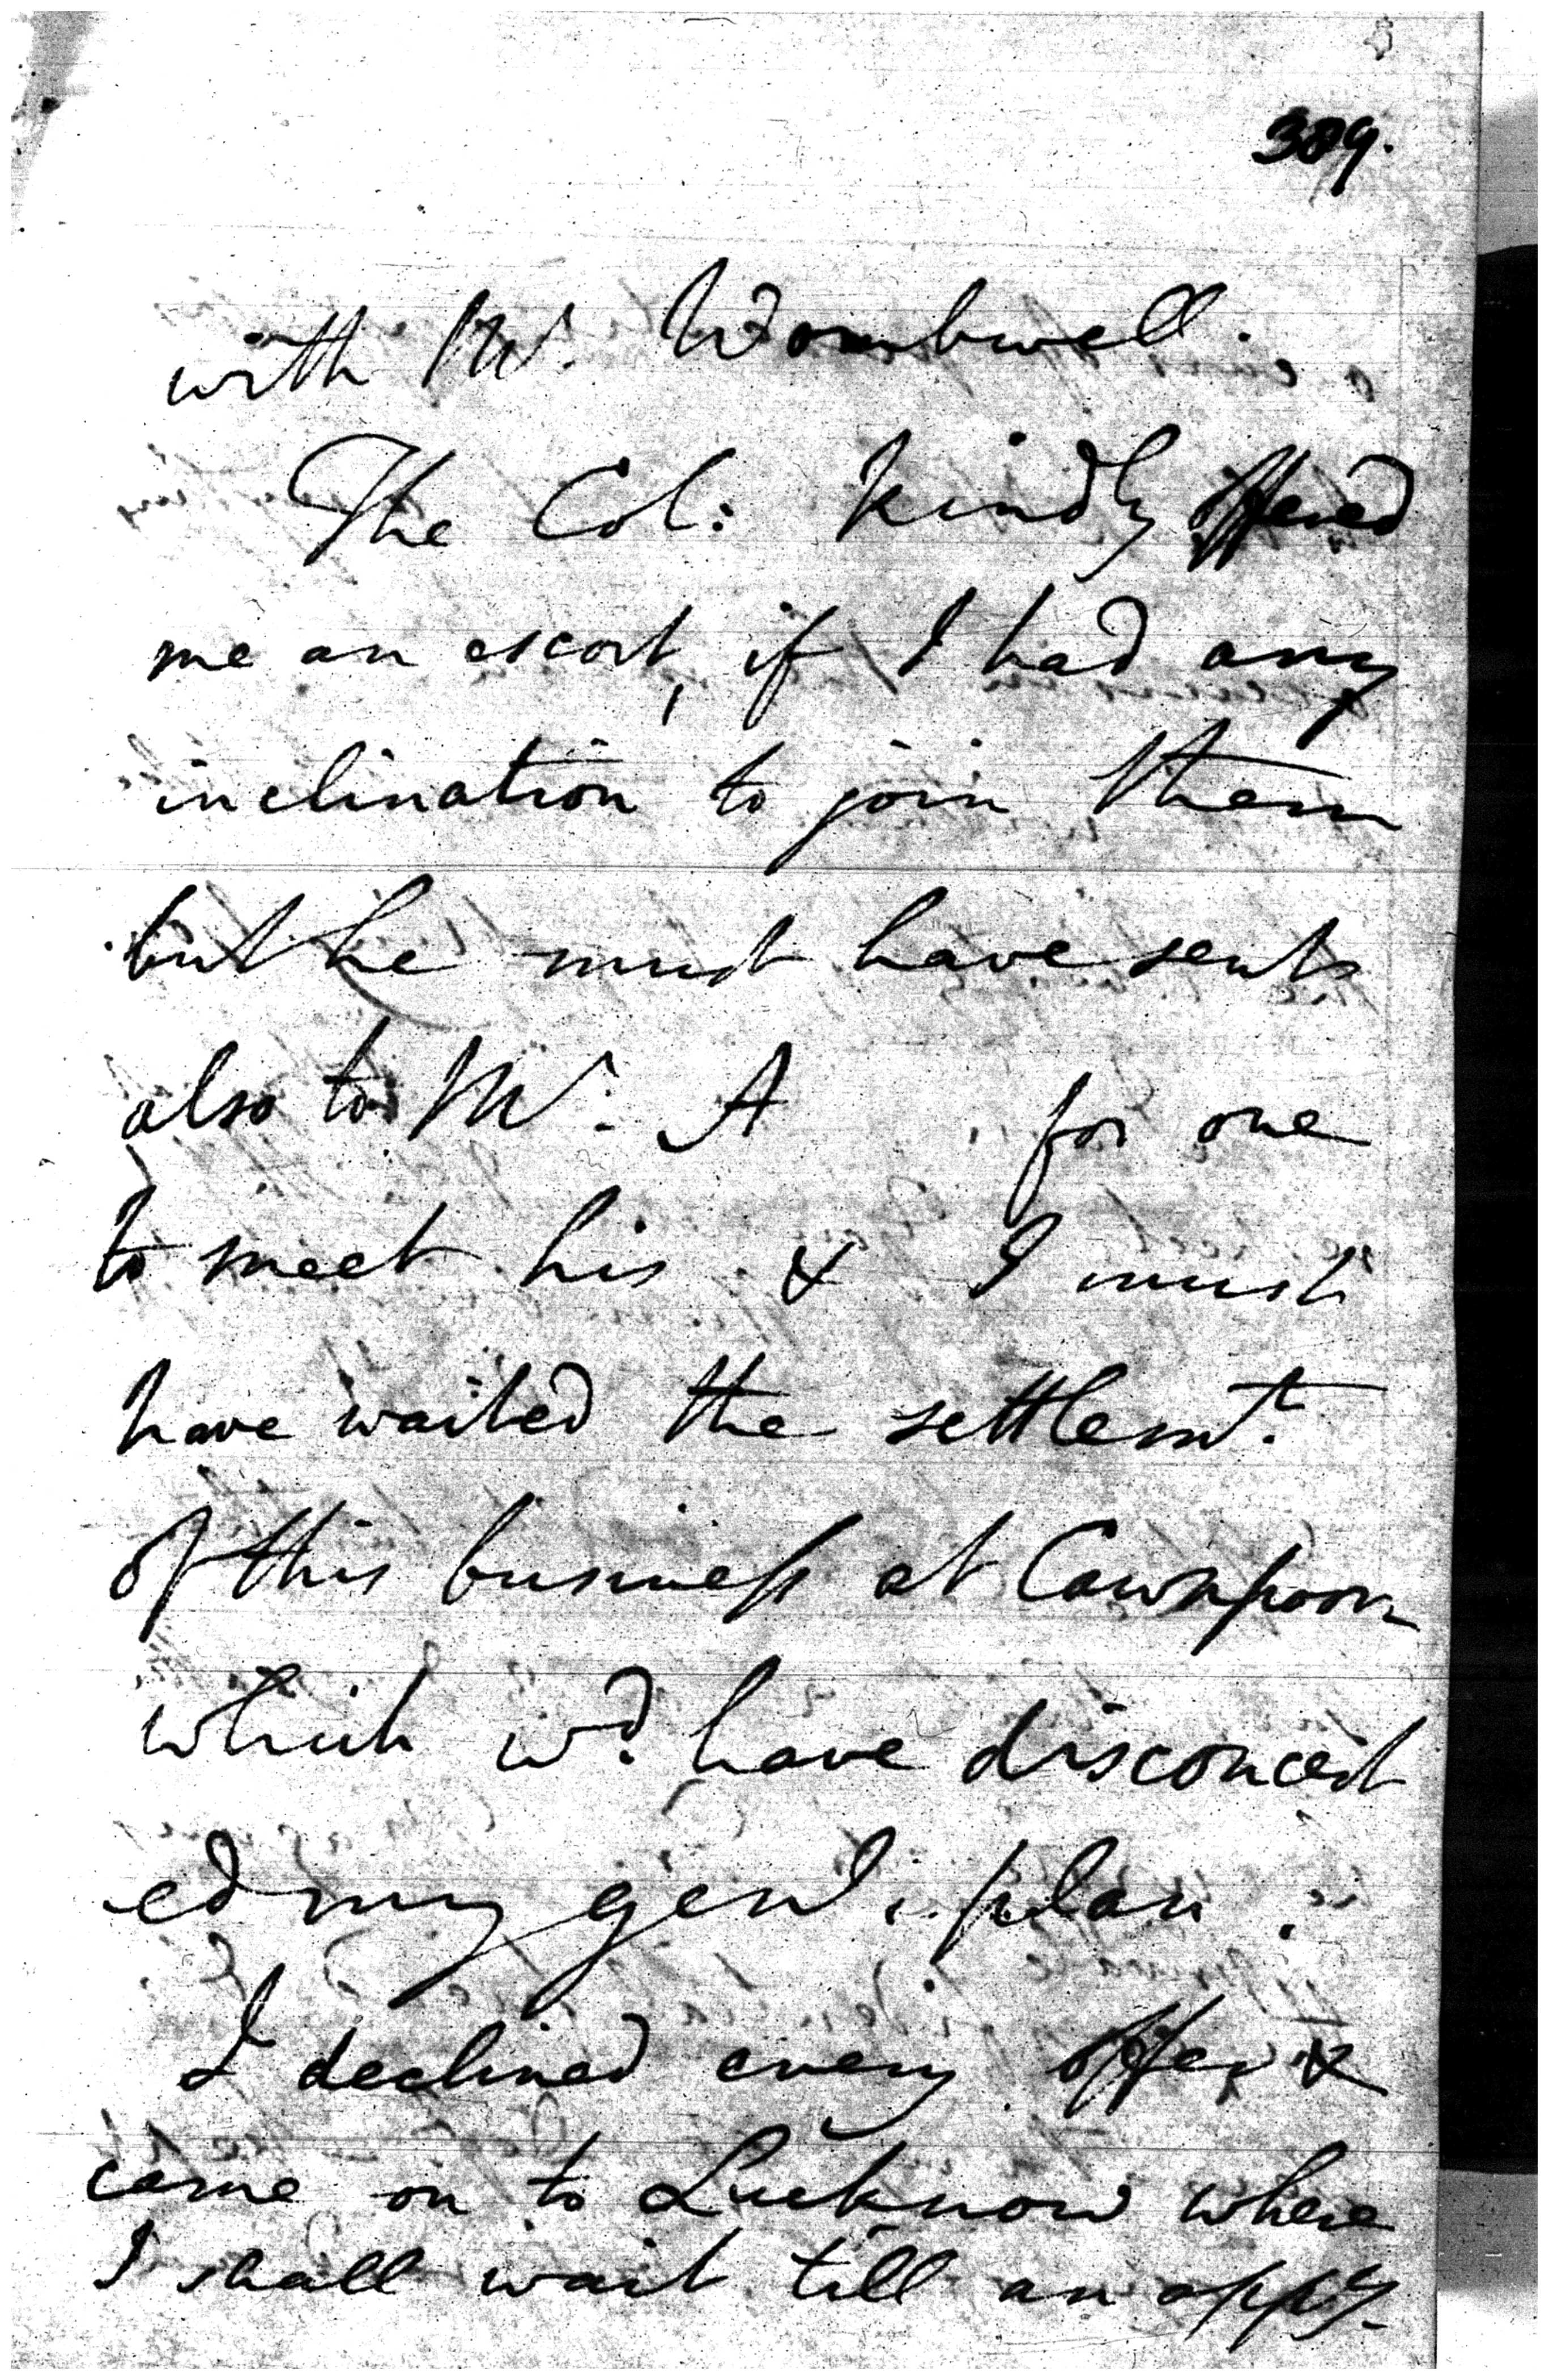 389.
with Mr. Wombwell.
The Col: kindly offered
me an escort, if I had any
inclination to join them
but he must have sent
also to Mr. A for one
to meet his & I must
have waited the settlemt.
of this business at Cawnpoor
which wd. have disconcert
ed my genl. plan.
I declined every offer &
came on to Lucknow where
I shall wait till an oppy.